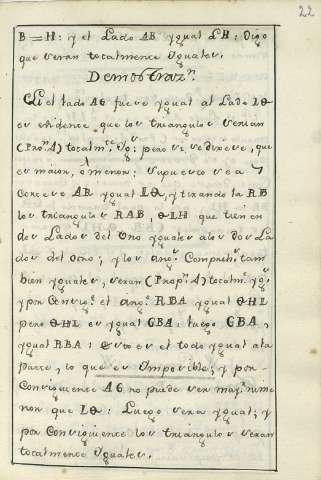 22
B = H: y el Lado AB ygual LH: Digo
que seran totalmente Yguales.
Demostraz.n
Si el lado AG fuese ygual al Lado LQ
es evidente que los triangulos serian
(Prop. 4) totalm.te Yg.s; pero se dixese, que
es maior, o menor: supuesto sea
Cortese AR ygual LQ, y tirando la RB
los triangulos RAB, QLH que tienen
dos Lados del Uno yguales a los dos La
dos del otro; y los ang.s Comprehe. tam
bien yguales, seran (Prop.n 4) totalm.e yg.s
y por Consig.e el ang. RBA ygual QHL
pero QHL es ygual GBA: luego GBA,
ygual RBA: esto es el todo ygual a la
parte, lo que es Imposible; y por
Consiguiente AG no puede ser may.r ni me
nor que LQ: Luego sera ygual; y
por Consiguiente los triangulos seran
totalmente Yguales.